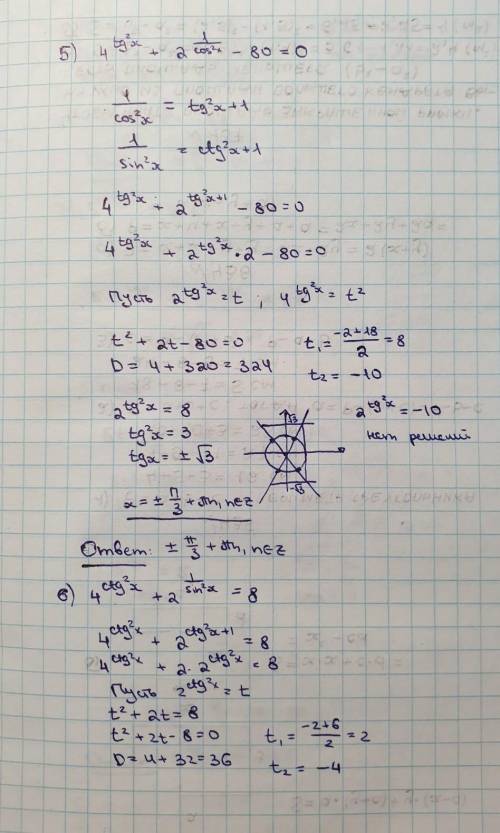 5) 4^(tg²x) + 2^(1/cos²x) − 80 = 0
1/cos²x = tg²x+1
1/sin²x = ctg²x+1
4^(tg²x) + 2^(tg²x+1) − 80 = 0
4^(tg²x) + 2^(tg²x)·2 − 80 = 0
Пусть 2^(tg²x) = t ; 4^(tg²x) = t²
t² + 2t − 80 = 0
D = 4 + 320 = 324
t₁ = (−2+18)/2 = 8
t₂ = −10
2^(tg²x) = 8
tg²x = 3
tgx = ±√3
√3
−√3
2^(tg²x) = −10
нет решений
x = ± π/3 + πn, n∈Z
Ответ: ± π/3 + πn, n∈Z
6) 4^(ctg²x) + 2^(1/sin²x) = 8
4^(ctg²x) + 2^(ctg²x+1) = 8
4^(ctg²x) + 2·2^(ctg²x) = 8
Пусть 2^(ctg²x) = t
t² + 2t = 8
t² + 2t − 8 = 0
D = 4 + 32 = 36
t₁ = (−2+6)/2 = 2
t₂ = −4